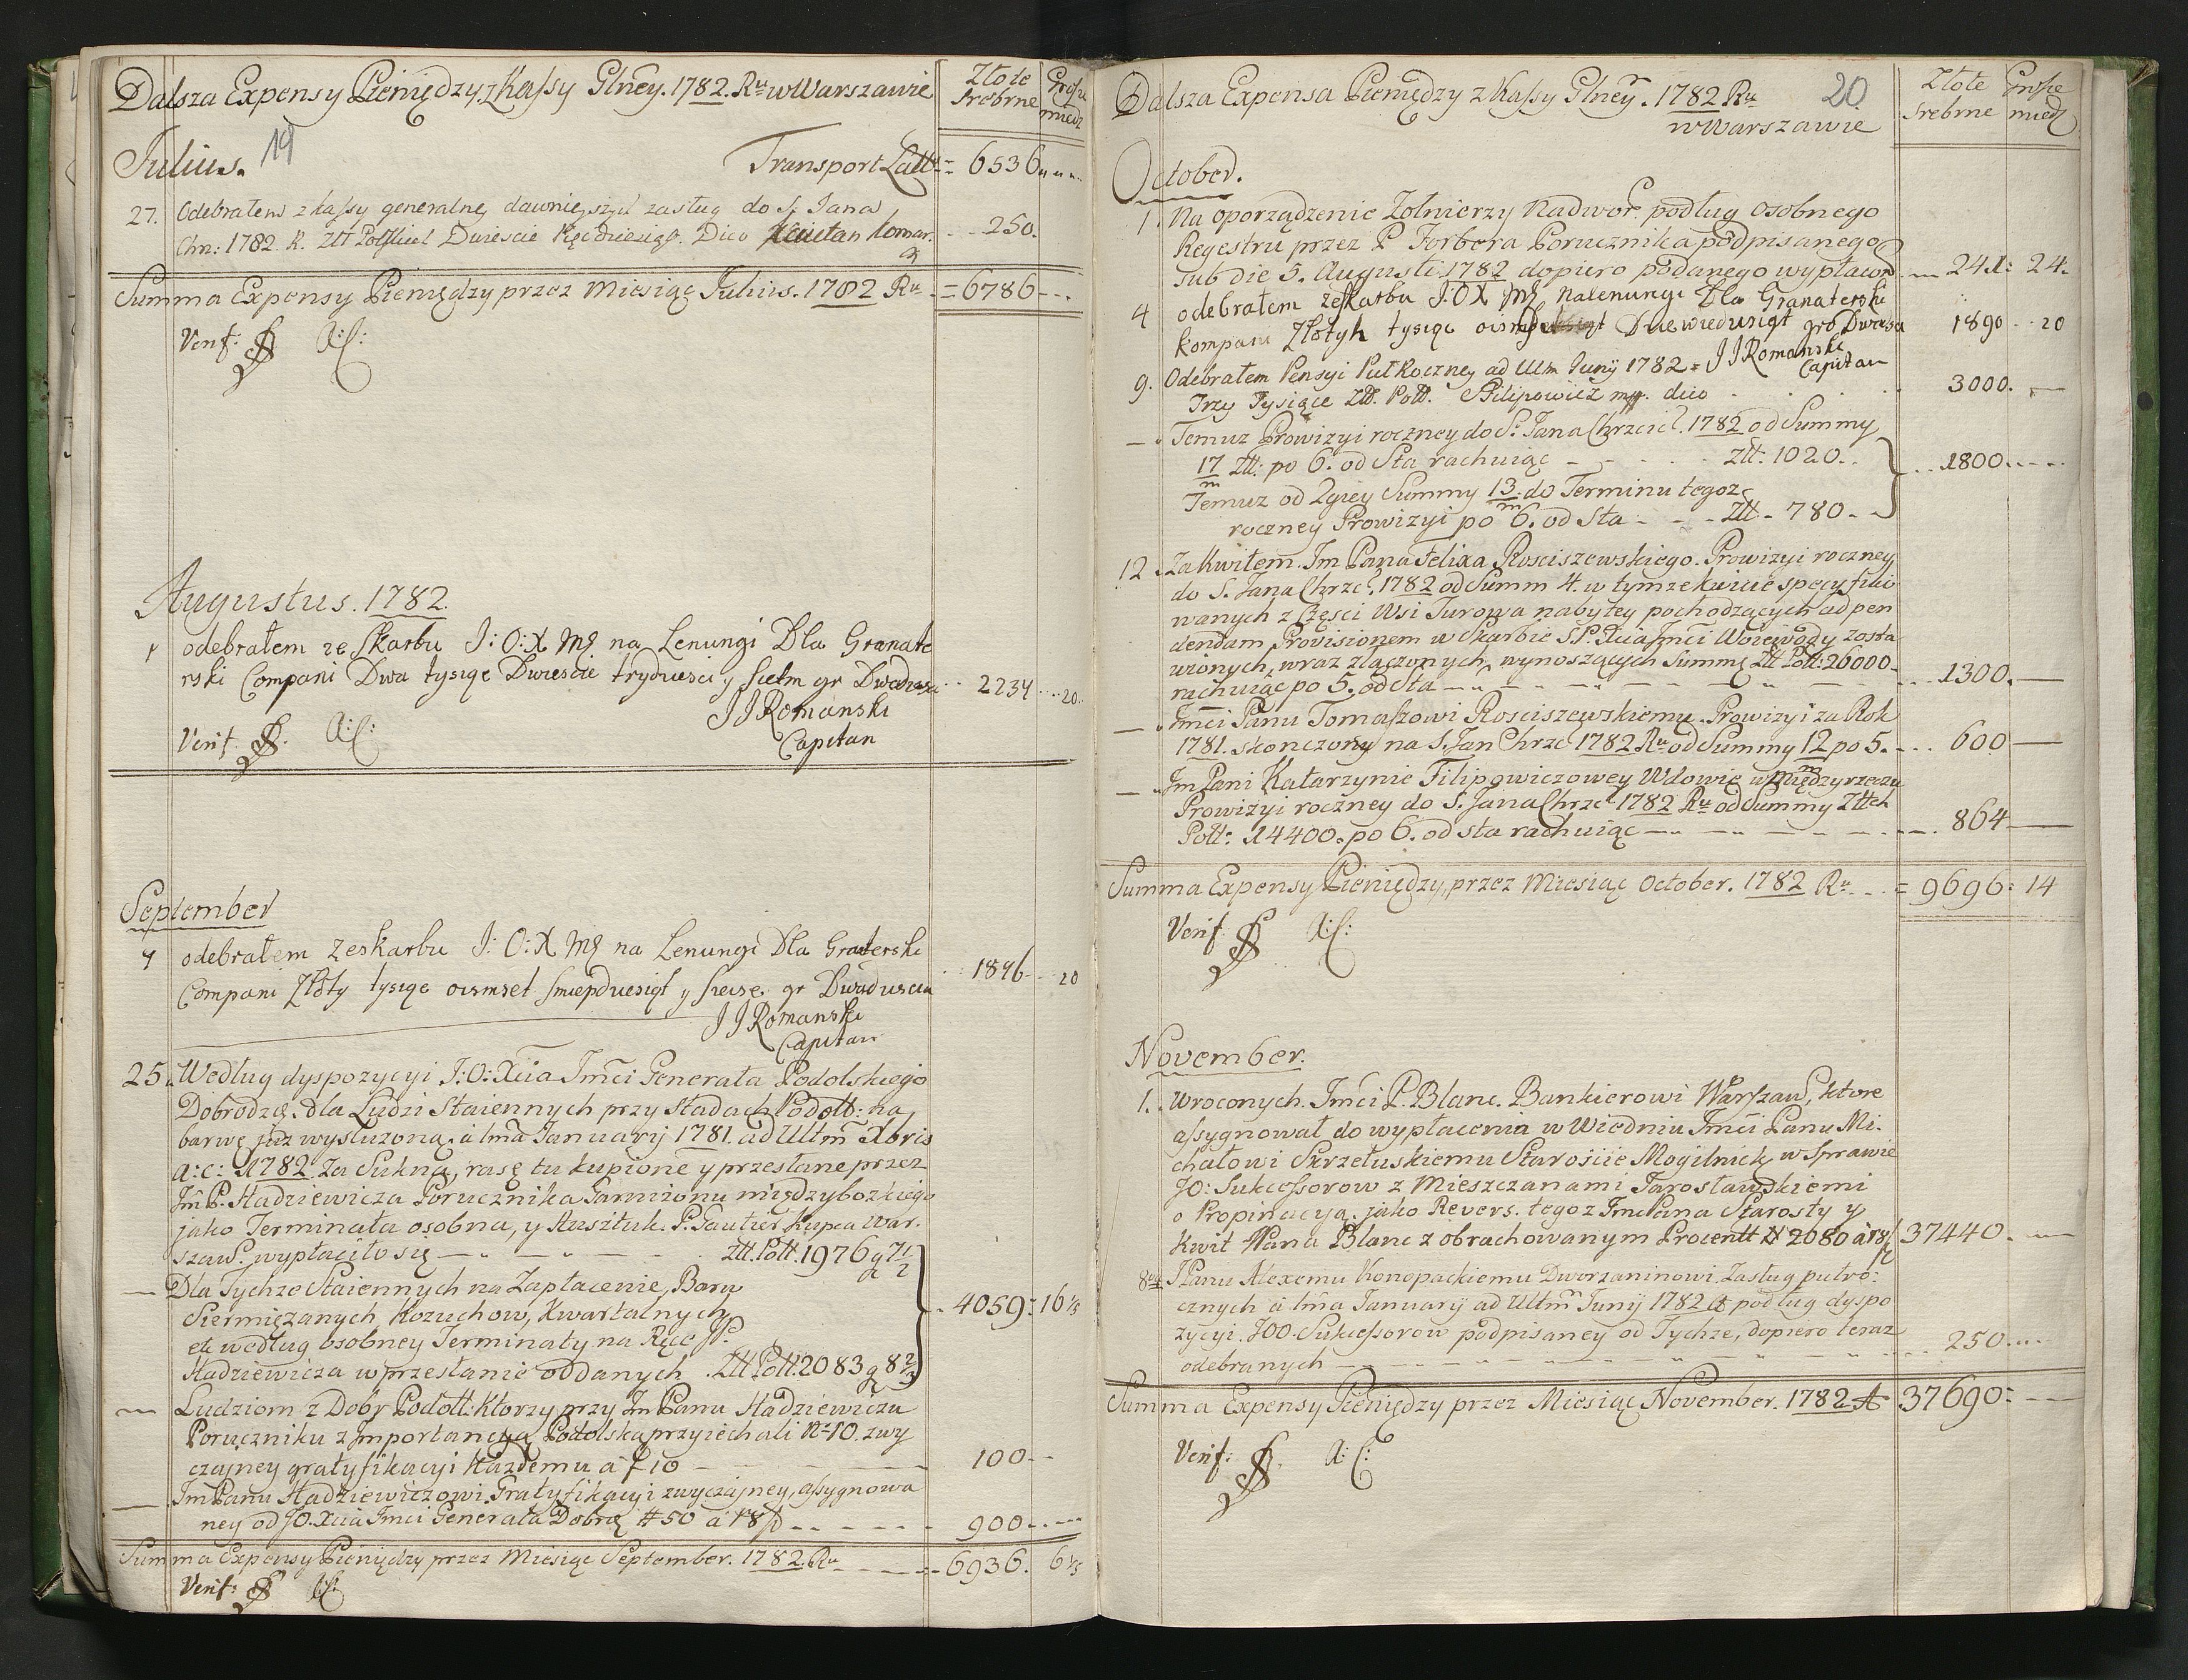 Dalsza Expensy Pieniędzy z Kassy Glney. 1782. Ru w Warszawie
Złote Srebrne
Grosze miedz
19
Julius.
Transport Latt = 6536
27. Odebrałem z kassy generalney dawnieyszych zasług do S. Jana
Chrz: 1782. R. Złł Polskich Dwiescie Pięcdziesiąt. Dico Kaietan Komar. 250.
Summa Expensy Pieniędzy przez Miesiąc Julius. 1782 Ru = 6786
Verif: A: C:
Augustus. 1782.
1 odebrałem ze Skarbu J: O: X Mę na Lenungi Dla Granate
rski Compani Dwa tysiące Dwiescie trydziesci y sietm gr Dwadziescia 2234 20.
J J Romanski
Capitan
Verif. A: C:
September
1 odebrałem Zeskarbu J: O: X Mę na Lenungi Dla Graterski
Compani Złoty tysiąc osmset y gr Dwadziescia 1896 20
J J Romanski
Capitan
25. Według dyspozycyi J: O: Xcia Jmci Generała Podolskiego
Dobrodz. dla Ludzi Staiennych przy Stadach Podoll: na
barwę już wysłużoną à 1ma Januarij 1781. ad Ultm Xbris
a: c: 1782. Za Sukna, rasę tu kupione y przesłane przez
Jm P. Hadziewicza Porucznika Garnizonu międzybozkiego
jako Terminata osobna, y Auszstuk. P. Gautier Kupca War.
szaw. wypłaciło się Złł. Poll. 1976 g 7 1/2
Dla Tychże Staiennych na Zapłacenie, Barw
Siermięzanych, Kożuchow, Kwartalnych
etc według osobney Terminaty na Ręce JP.
Hadziewicza w przesłanie oddanych. Złł Poll. 2083 g 8 2/3
4059: 16 1/3
Ludziom z Dobr Podoll: Ktorzy przy Jm Panu Hadziewiczu
Poruczniku z Importancyą Podolską przyiechali No 10. zwy
czayney gratyfikacyi Każdemu á f 10 100
Jm Panu Hadziewiczowi Gratyfikacyi zwyczayney, assygnowa
ney od JO. Xcia Jmci Generała Dobrę # 50 á 18 900
Summa Expensy Pieniędzy przez Miesiąc September. 1782. Ru 6936. 6 1/3
Verif: A: C:
Dalsza Expensa Pieniędzy z Kassy Glney. 1782 Ru
w Warszawie
20
Złote Srebrne
Grosze miedz
October.
1. Na oporządzenie Zołnierzy Nadwor. podług osobnego
Regestru przez P Forbera Porucznika podpisanego
sub die 5. Augusti 1782 dopiero podanego wypłacono 241: 24.
4 odebrałem zeskarbu J: O X Mę nalenungi Dla Granaterski
kompani Złotyh tysiąc Dziewiedziesiąt gro Dwadziescia 1890 20
J J Romanski
Capitan
9. Odebrałem Pensyi Pułroczney ad Ultm Junij 1782
Trzy Tysiące Złł. Poll. Filipowicz mp. dico 3000.
Temuz Prowizyi roczney do S. Jana Chrzcic. 1782 od Summy
17 m Złł: po 6. od Sta rachuiąc Złł. 1020.
Temuz od 2giey Summy 13 m do Terminu tegoz
roczney Prowizyi po 6. od Sta Złł 780
1800
12. Za kwitem Jm Pana Felixa Rosciszewskiego. Prowizyi roczney
do S. Jana Chrzc. 1782 od Summ 4. w tymze kwicie specyfiko
wanych z Części Wsi Jurowa nabytey pochodzących ad pen
dendam Provisionem w Skarbie S. P. Xcia Jmci Woiewody zosta
wionych, wraz złączonych, wynoszących Summę Złł Poll: 26000
rachuiąc po 5. od Sta 1300.
Jmci Panu Tomaszowi Rosciszewskiemu. Prowizyi za Rok
1781. skonczony na S. Jan Chrzc 1782 Ru od Summy 12 m po 5. 600
Jm Pani Katarzynie Filipowiczowey Wdowie w Międzyrzeczu
Prowizyi roczney do S. Jana Chrzc 1782 Ru od Summy Złłch
Poll: 14400. po 6. od sta rachuiąc 864
Summa Expensy Pieniędzy, przez Miesiąc October. 1782 Ru = 9696: 14
Verif A: C:
November.
1. Wroconych. Jmci P. Blanc. Bankierowi Warszaw, ktore
assygnował do wypłacenia w Wiedniu Jmci Panu Mi.
chałowi Skrzetuskiemu Starosicie Mogilnick, w Sprawie
JO: Sukcessorow z Mieszczanami Jarosławskiemi
o Propinacyą. jako Revers. tegoz Jmc Pana Starosty y
kwit Pana Blanc z obrachowanym Procentt # 2080 á 18 37440.
8va JPanu Alexemu Konopackiemu Dworzaninowi. Zasług pułro:
cznych á 1ma Januarij ad Ultm Junij 1782 podług dyspo
zycyi. JOO. Sukcessorow podpisaney od Tychze, dopiero teraz
odebranych 250
Summa Expensy Pieniędzy przez Miesiąc November. 1782 37690:
Verif: A: C: